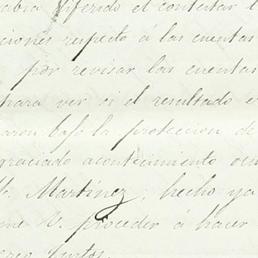 diferido el contestar l
ciones respecto á las cuentas
por revisar las cuentas
para ver si el resultado e
bajo la proteccion de
graciado acontecimiento
Martinez, hecho ya
me V. proceder á hacer